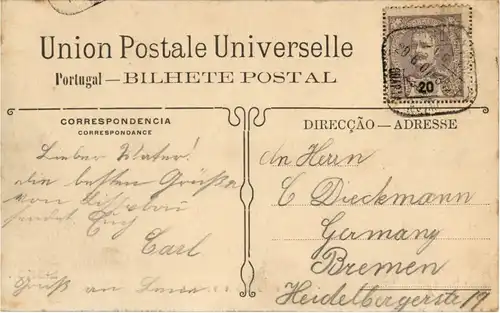 Union Postale Universelle
Portugal — BILHETE POSTAL
20
CORRESPONDENCIA
CORRESPONDANCE
DIRECÇÃO — ADRESSE
Lieber Vater!
die besten Grüße
von Lissabon
sendet Euch
Carl
Gruß an
An Herrn
C Dieckmann
Germany
Bremen
Heidelbergerstr 17